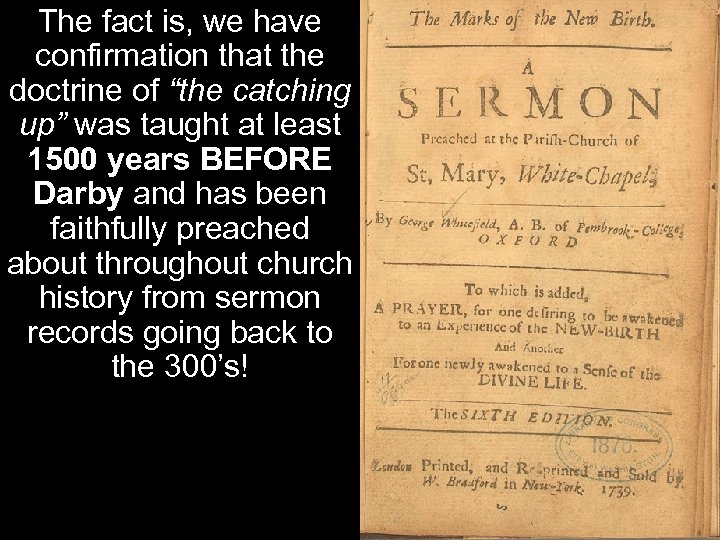 The fact is, we have
confirmation that the
doctrine of “the catching
up” was taught at least
1500 years BEFORE
Darby and has been
faithfully preached
about throughout church
history from sermon
records going back to
the 300’s!
The Marks of the New Birth.
A
SERMON
Preached at the Parish-Church of
St, Mary, White-Chapel,
By George Whitefield, A. B. of Pembrook-College,
OXFORD
To which is added,
A PRAYER, for one desiring to be awakened
to an Experience of the NEW-BIRTH
And Another
For one newly awakened to a Sense of the
DIVINE LIFE.
The SIXTH EDITION.
1876.
London Printed, and Reprinted and Sold by
W. Bradford in New-York. 1739.